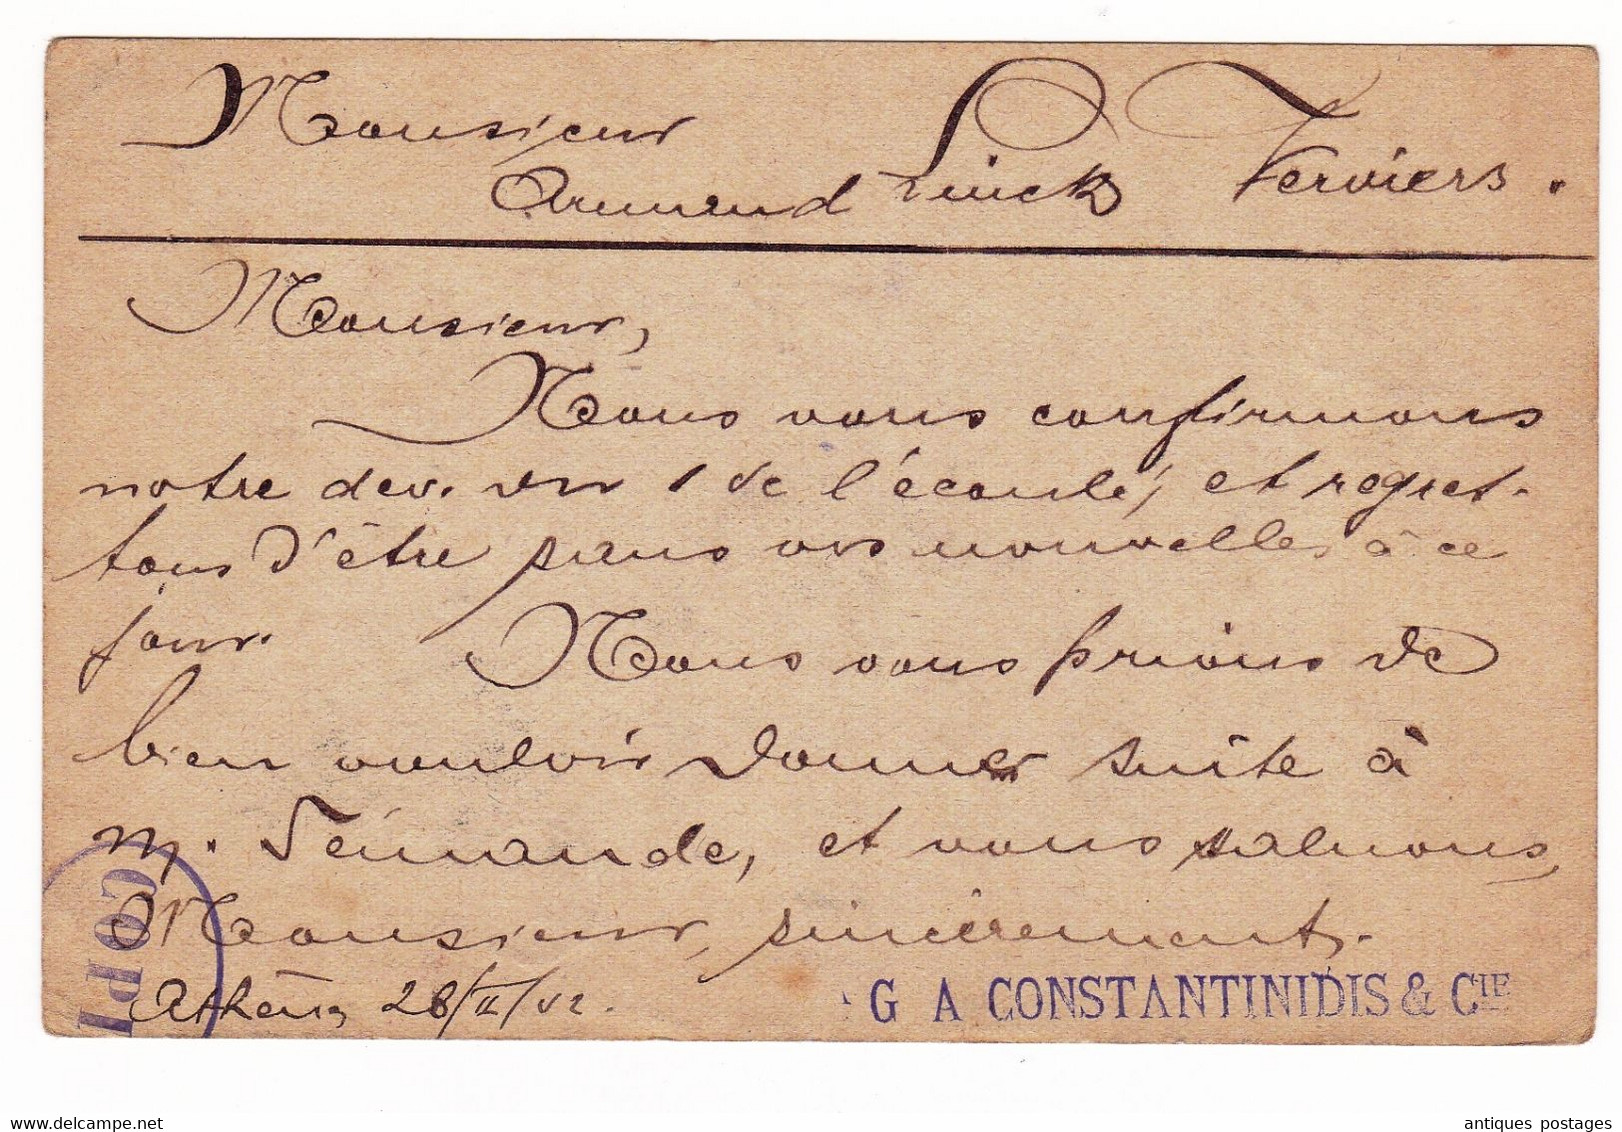 Monsieur
Armand Linck Verviers.
Monsieur,
Nous vous confirmons
notre dev. du 1 de l'écoulé, et regret-
tons d'être sans vos nouvelles à ce
jour. Nous vous prions de
bien vouloir donner suite à
m. demande, et vous saluons,
Monsieur, sincèrement.
Athènes 28/II/02.
G A CONSTANTINIDIS & CIE
COPI
antiques postages